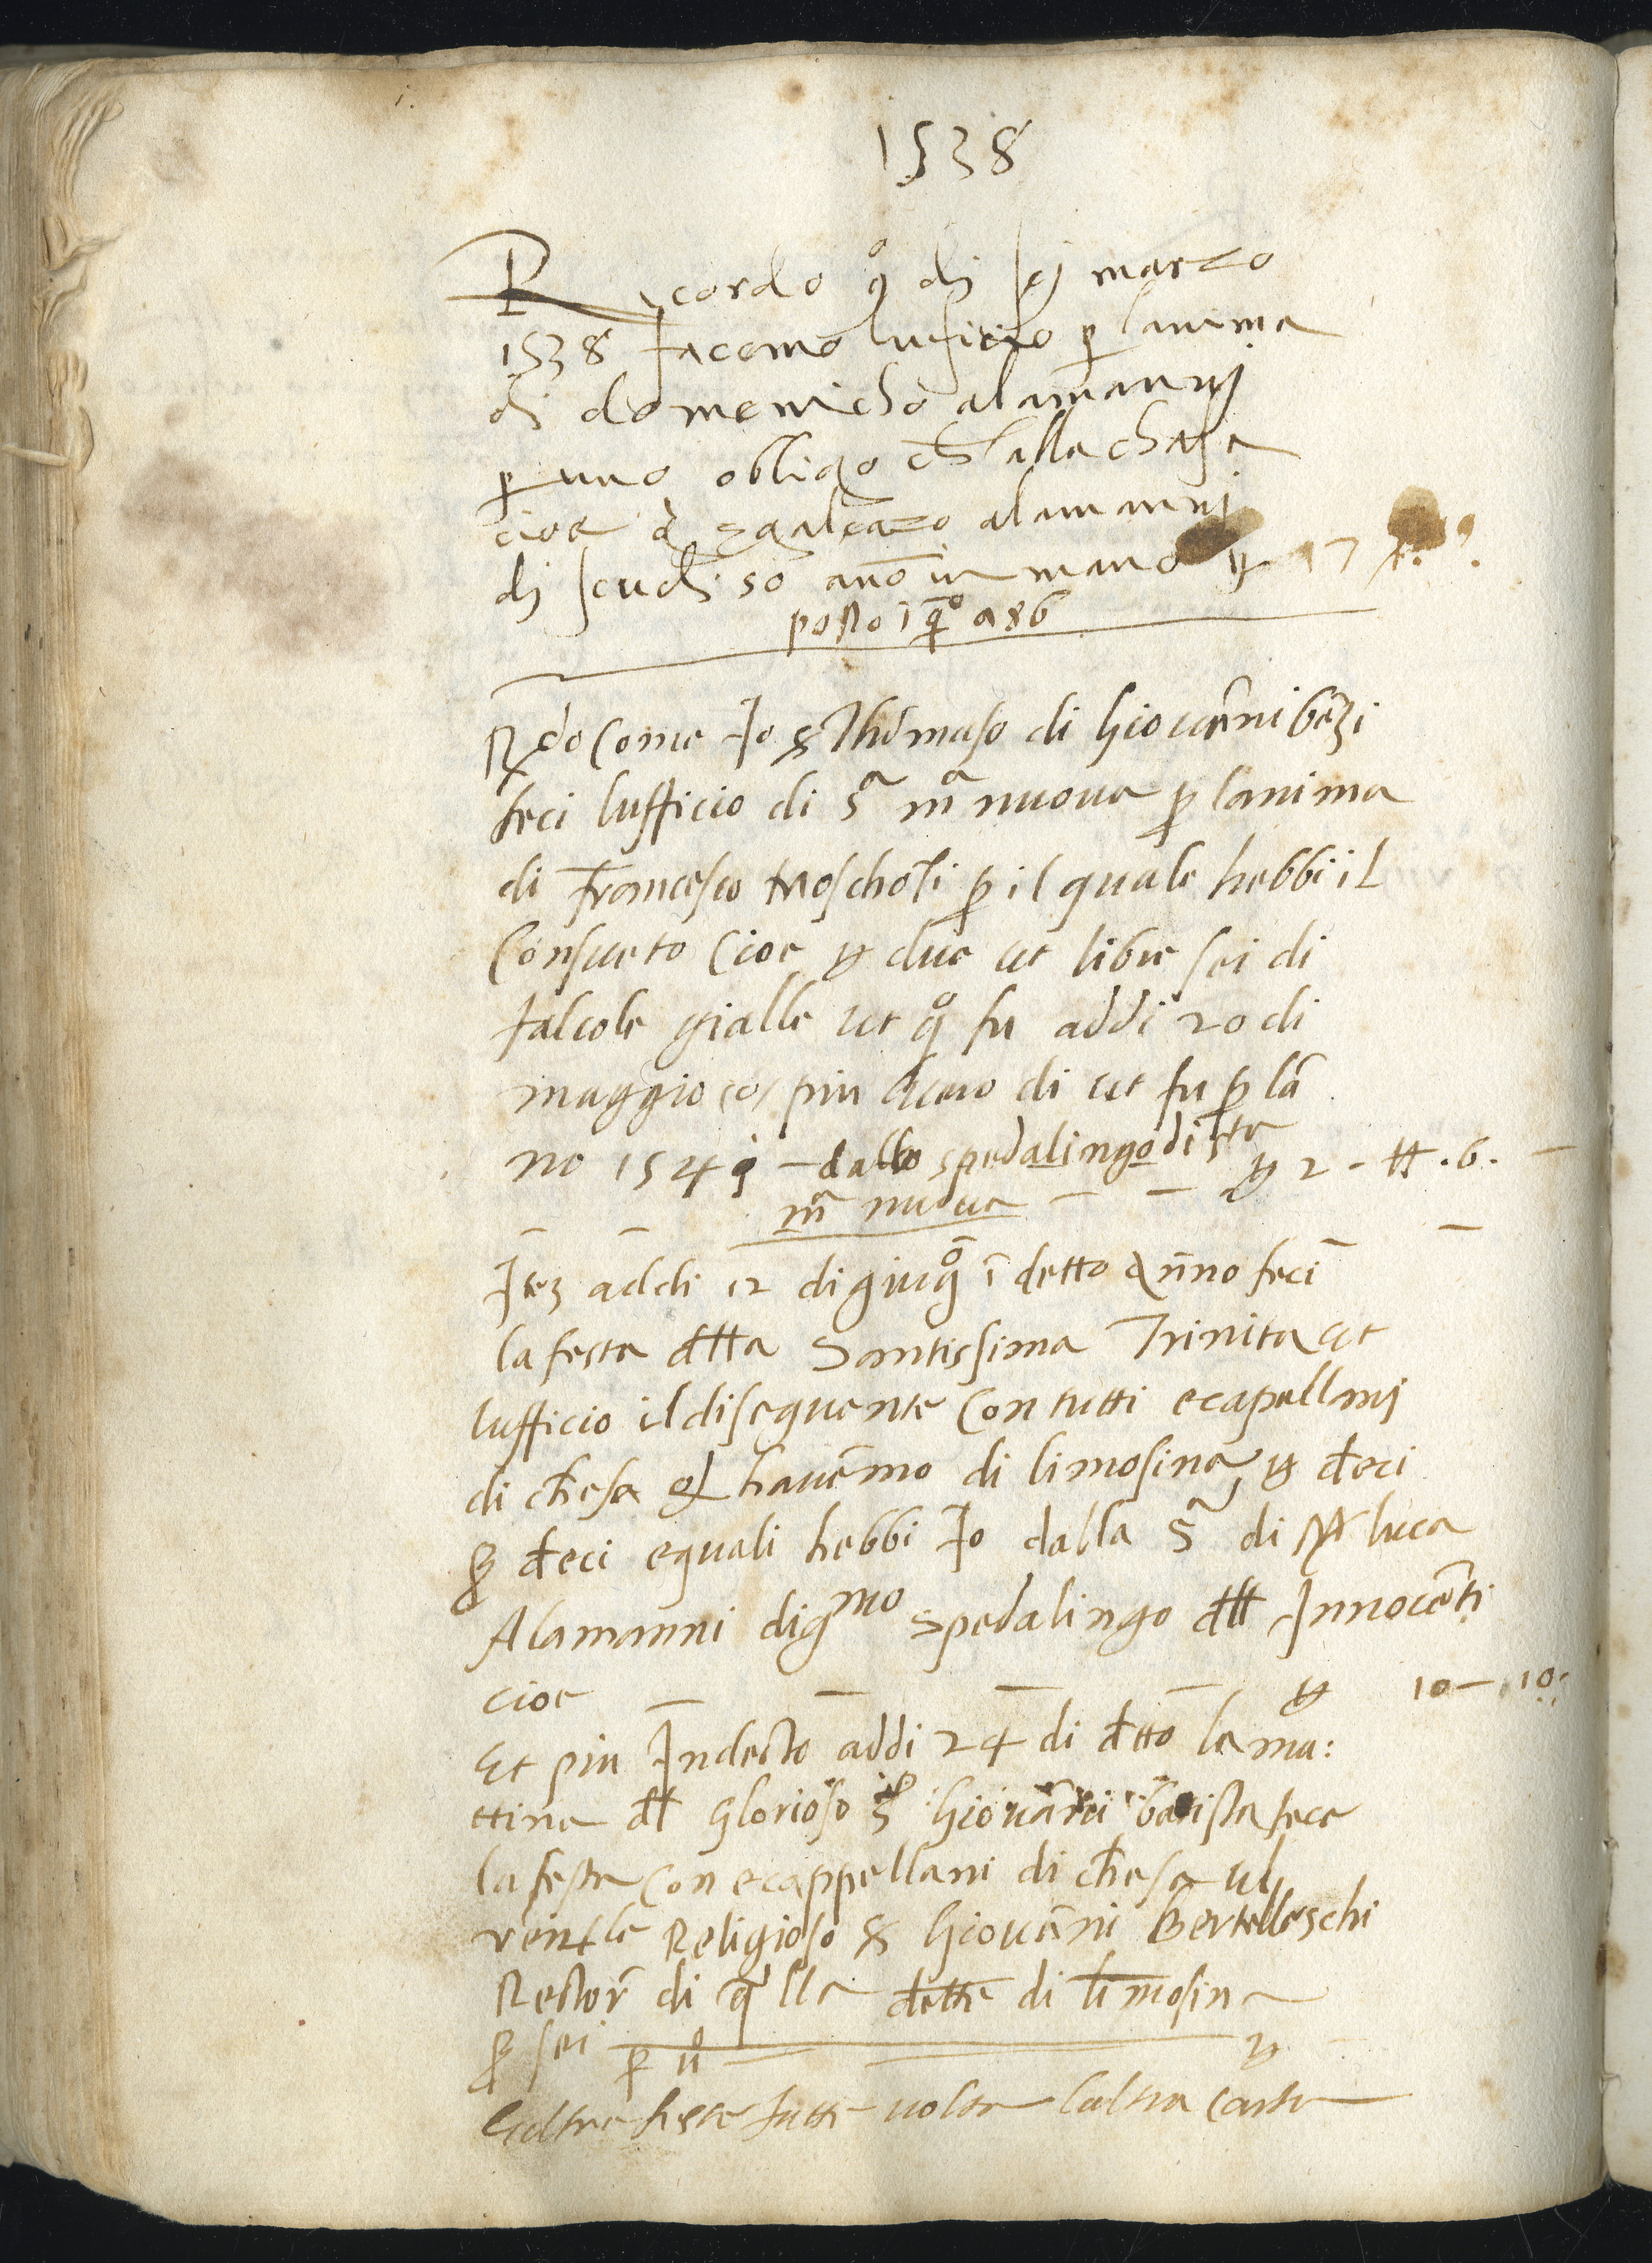 1538
Ricordo qo di sej marzo
1538 facemo lufitio p lanima
di domenicho alamannj
p uno obligo ch alla chasa
cioe di ghaleazo alamannj
di scudi 50 ano in mano 17
posto i qo a 86
Rdo Come Io s Thomaso di Giovanni benzi
feci lufficio di sa ma nuova p lanima
di Francesco Moscholi p il quale hebbi il
Consueto Cioe due et libre sei di
falcole gialle et qo fu addi 20 di
maggio piu di et fu p la
no 154 - dallo spedalingo di sta
ma nuova - - 2 - ₶ .6. -
Ite3 addi 12 di giugo i detto Anno feci
la festa della Santissima Trinita et
lufficio il di sequente Con tutti e capellanj
di chiesa havemo di limosina dieci
p dieci equali hebbi Io dalla sa di Mr Luca
Alamanni digmo spedalingo delli Innocenti
cioe - - - - 10 - 10
Et piu In decto addi 24 di detto la ma:
ttina del glorioso s Giovanni batista fece
la festa Con e cappellani di chiesa il
religioso s Giovanni Bertelleschi
Rector di qlla dette di limosina
p sei p
Laltre feste fatte volta laltra Carta